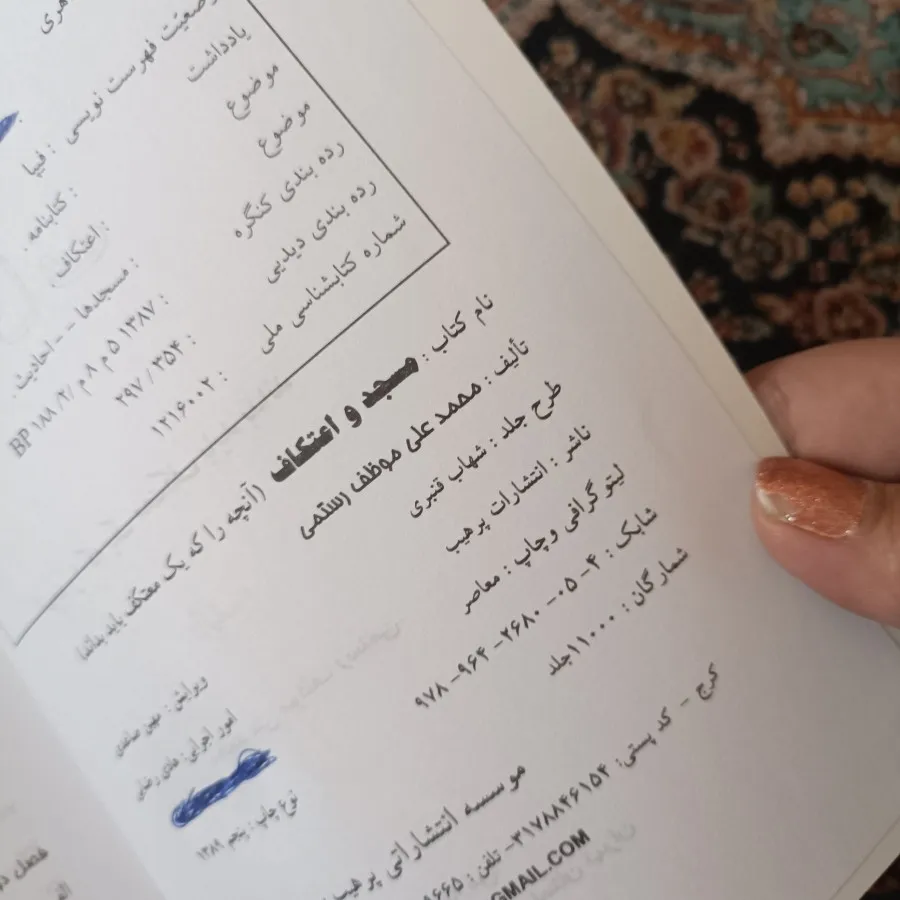 وضعیت فهرست نویسی : فیپا
یادداشت : کتابنامه .
موضوع : اعتکاف.
موضوع : مسجدها -- احادیث.
رده بندی کنگره : ۱۳۸۷ ۵م۸م/۲/۱۸۸ BP
رده بندی دیدیی : ۲۹۷/۳۵۴
شماره کتابشناسی ملی : ۱۲۱۶۰۰۲
نام کتاب : مسجد و اعتکاف (آنچه را که یک معتکف باید بداند)
تألیف : محمد علی موظف رستمی
طرح جلد : شهاب قنبری
ناشر : انتشارات پرهیب
ویرایش :
لیتوگرافی وچاپ : معاصر
امور اجرایی:
شابک : ۴-۰۵-۲۶۸۰-۹۶۴-۹۷۸
شمارگان : ۱۱۰۰۰جلد
نوع چاپ : پنجم ۱۳۸۹
موسسه انتشاراتی پرهیب
کرج - کد پستی: ۳۱۷۸۸۴۶۱۵۴- تلفن :
GMAIL.COM